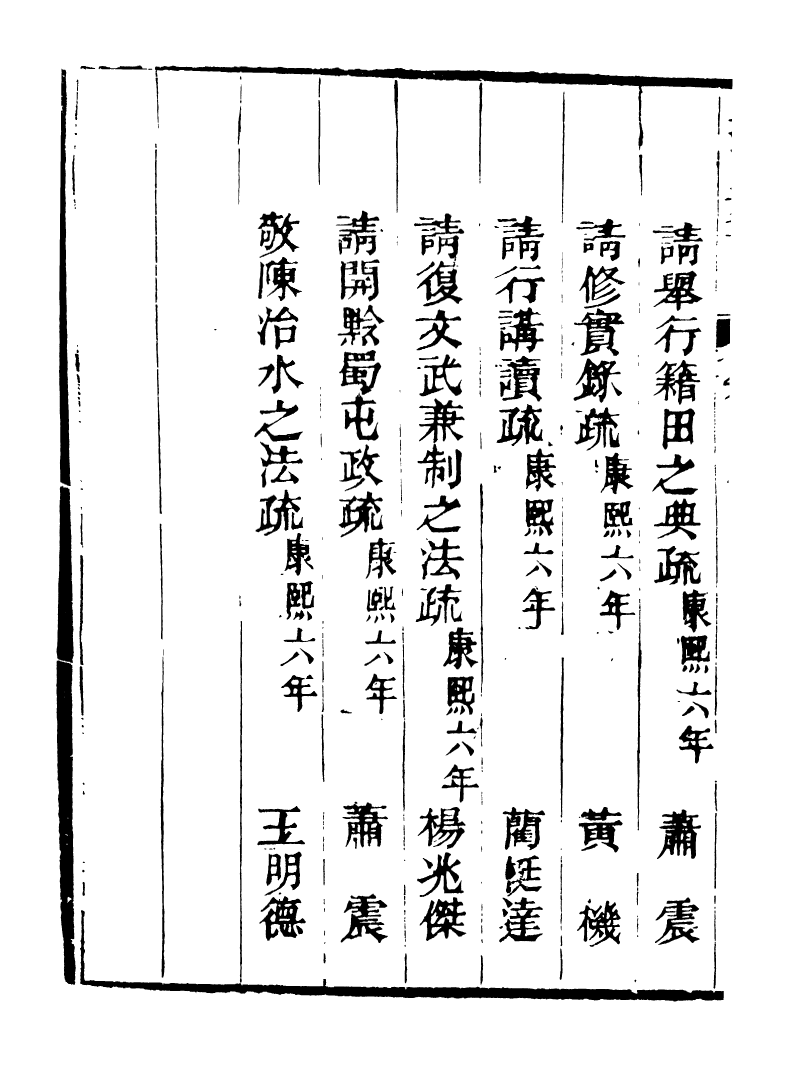 請舉行籍田之典疏康熙六年 蕭震
請修實錄疏康熙六年 黃機
請行講讀疏康熙六年 藺挺達
請復文武兼制之法疏康熙六年 楊兆傑
請開黔蜀屯政疏康熙六年 蕭震
敬陳治水之法疏康熙六年 王明德